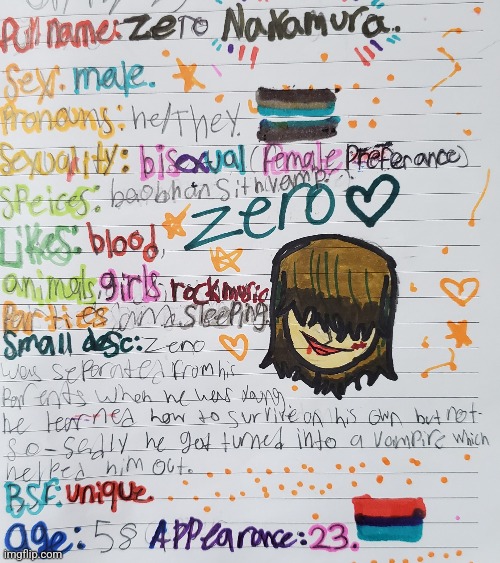 Full name: Zero Nakamura.
Sex: male.
Pronouns: he/They.
Sexuality: bisexual (female preferance)
Speices: baobhan Sith vamp.
Zero
Likes: blood,
animals, girls, rock music
Parties and sleeping
Small desc: Zero
was seperated from his
Parents when he was young.
he learned how to survive on his own but not-
so-sadly he got turned into a vampire which
helped him out.
BSF: unique.
age: 58 Appearance: 23.
imgflip.com